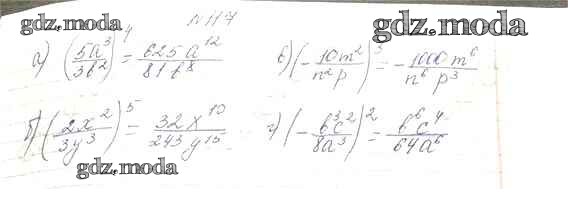 gdz.moda
gdz.moda
N 117
а) (5a³/3b²)⁴ = 625a¹²/81b⁸
в) (-10m²/n²p)³ = -1000m⁶/n⁶p³
б) (2x²/3y³)⁵ = 32x¹⁰/243y¹⁵
г) (-b³c²/8a³)² = b⁶c⁴/64a⁶
gdz.moda